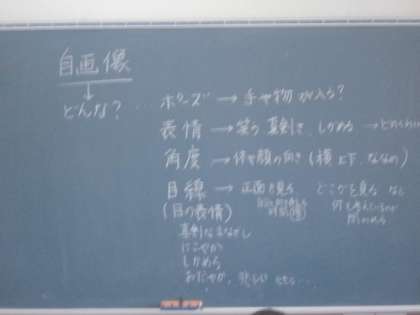 自画像
↓
どんな? … ポーズ → 手や物が入る?
表情 → 笑う 真剣 しかめる →
角度 → 体や顔の向き(横 上下 ななめ)
目線 → 正面を見る どこかを見る など
(目の表情)
真剣なまなざし
にこやか
しかめる
おだやか、悲しい etc…